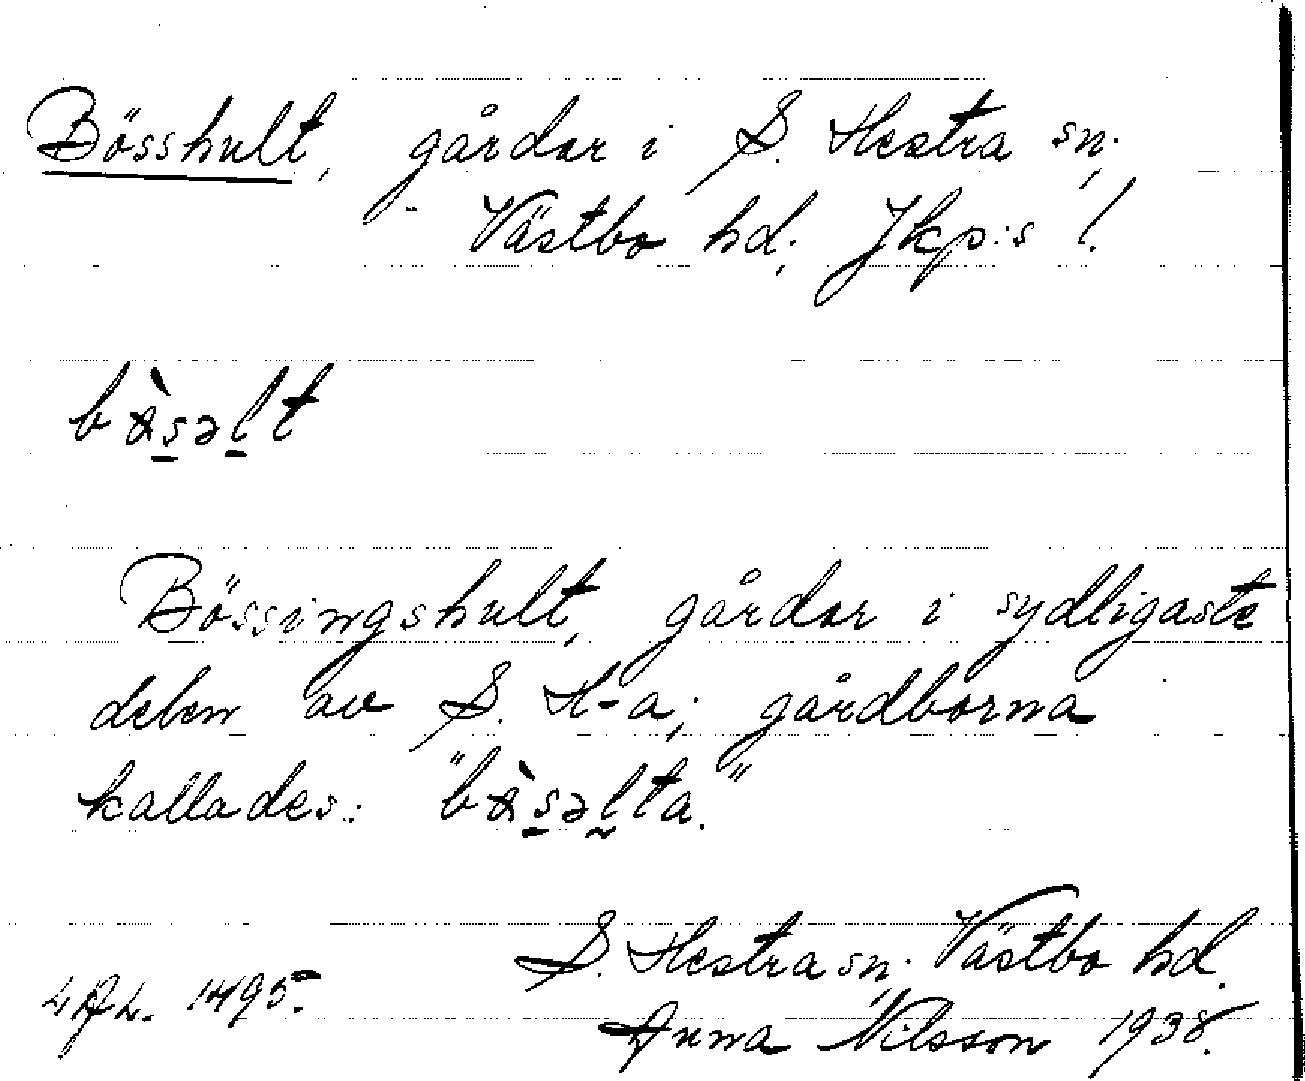 Bösshult, gårdar i S. Hestra sn;
Västbo hd; Jkp:s l.
bø̀səlt
Bössingshult, gårdar i sydligaste
delen av S. H-a; gårdborna
kallades: "bø̀səlta."
S. Hestra sn; Västbo hd.
1495. Anna Nilsson 1938.